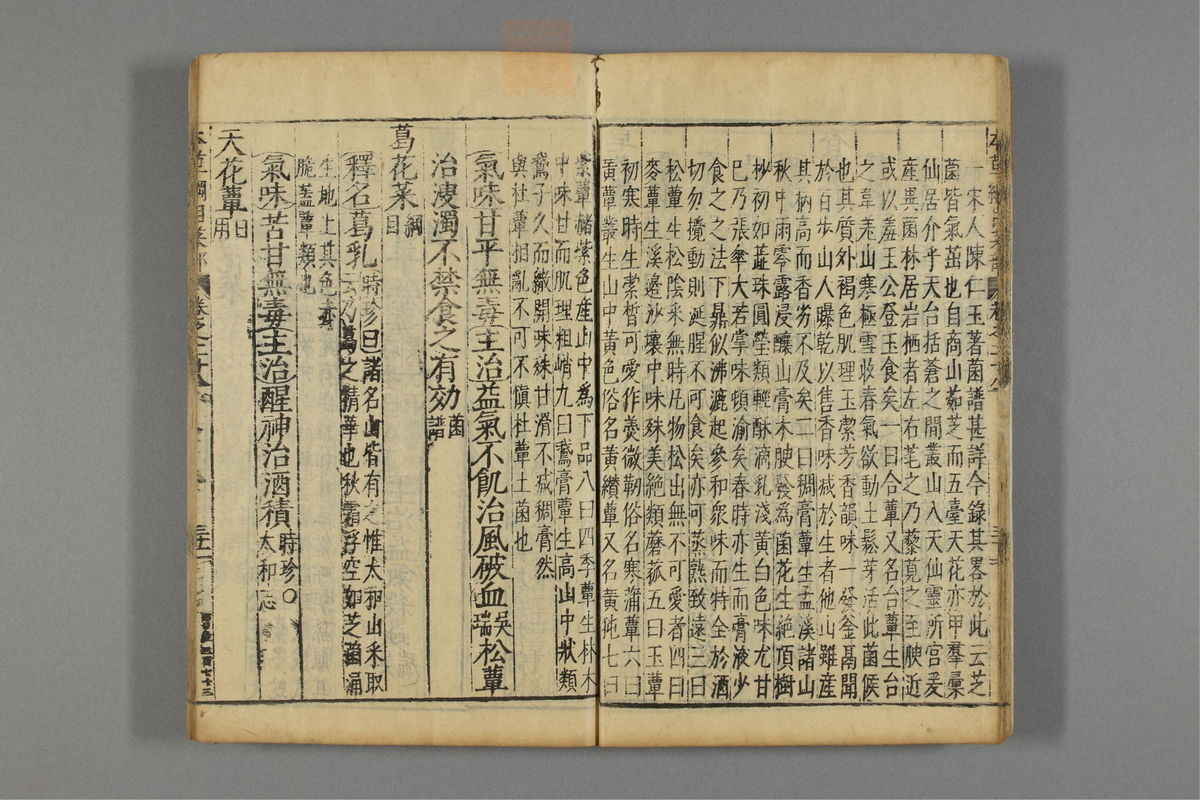 宋人陳仁玉著菌譜甚詳今錄其畧於此云芝
菌皆氣茁也自商山茹芝而五臺天花亦甲羣彙
仙居介乎天台括蒼之間叢山入天仙靈所宫爰
産異菌林居岩栖者左右芼之乃藜莧之至腴近
或以羞王公登玉食矣一曰合蕈又名台蕈生台
之韋羌山寒極雪收春氣欲動土鬆芽活此菌候
也其質外褐色肌理玉㓗芳香韻味一發釜鬲聞
於百步山人曝乾以售香味减於生者他山雖産
其柄高而香劣不及矣二曰稠膏蕈生孟溪諸山
秋中雨零露浸釀山膏木腴發爲菌花生絶頂樹
杪初如蕋珠圓瑩類輕酥滴乳淺黄白色味尤甘
巳乃張傘大若掌味頓渝矣春時亦生而膏液少
食之之法下鼎似沸漉起參和衆味而特全於酒
切勿攪動則涎腥不可食矣亦可蒸熟致遠三曰
松蕈生松陰采無時凡物松出無不可愛者四曰
麥蕈生溪邊沙壤中味殊美絶類蘑菰五曰玉蕈
初寒時生㓗晳可愛作羮微韌俗名寒蒲蕈六曰
黄蕈叢生山中黄色俗名黄纉蕈又名黄㹠七曰
紫蕈赭紫色産山中爲下品八曰四季蕈生林木
中味甘而肌理粗峭九曰鵞膏蕈生高山中狀類
鵞子久而繖開味殊甘滑不减稠膏然
與杜蕈相亂不可不愼杜蕈土菌也
氣味甘平無毒主治益氣不飢治風破血吳瑞松蕈
治溲濁不禁食之有効菌譜
葛花菜綱目
釋名葛乳時珍曰諸名山皆有之惟太和山采取
云乃葛之精華也秋霜浮空如芝菌涌
生地上其色赤
脆蓋蕈類也
氣味苦甘無毒主治醒神治酒積時珍〇太和志
天花蕈日用